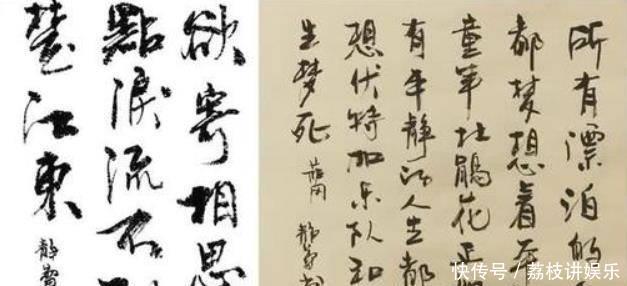 欲寄相思
點淚流不
楚江東
静蕾
所有漂泊的
都梦想着平
童年杜鹃花正
有平静的人生都
想伏特加乐队和
生梦死
静蕾
快传号/荔枝讲娱乐